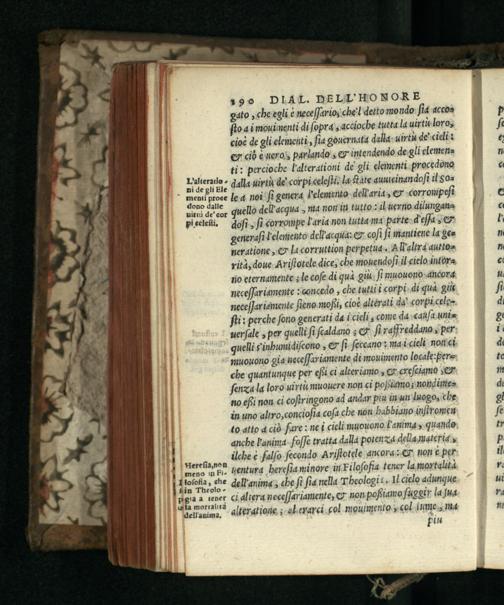 290 DIAL. DELL'HONORE
gato, che egli è neceſſario, che'l detto mondo ſia acco-
ſto a i mouimenti di ſopra, accioche tutta la uirtù loro,
cioè de gli elementi, ſia gouernata dalla uirtù de' cieli:
& ciò è uero, parlando, & intendendo de gli elemen-
ti: percioche l'alterationi de gli elementi procedono
dalla uirtù de' corpi celeſti. la ſtate auuicinandoſi il ſo-
le a noi ſi genera l'elemento dell'aria, & corrompeſi
quello dell'acqua, ma non in tutto: il uerno dilungan-
doſi, ſi corrompe l'aria non tutta ma parte d'eſſa, &
generaſi l'elemento dell'acqua: & coſi ſi mantiene la ge-
neratione, & la corruttion perpetua. All'altra autto-
rità, doue Ariſtotele dice, che mouendoſi il cielo inter-
no eternamente; le coſe di quà giù ſi muouono ancora
neceſſariamente: concedo, che tutti i corpi di quà giù
neceſſariamente ſieno moſſi, cioè alterati da' corpi cele-
ſti: perche ſono generati da i cieli, come da cauſa uni-
uerſale, per quelli ſi ſcaldano; & ſi raffreddano, per
quelli s'inhumidiſcono, & ſi ſeccano: ma i cieli non ci
muouono già neceſſariamente di mouimento locale: per-
che quantunque per eſſi ci alteriamo, & creſciamo, &
ſenza la loro uirtù muouere non ci poſſiamo; nondime-
no eſſi non ci coſtringono ad andar più in un luogo, che
in uno altro, concioſia coſa che non habbiano inſtromen-
to atto a ciò fare: ne i cieli muouono l'anima, quando
anche l'anima foſſe tratta dalla potenza della materia,
ilche è falſo ſecondo Ariſtotele ancora: & non è per
uentura hereſia minore in Filoſofia tener la mortalità
dell'anima, che ſi ſia nella Theologia. Il cielo adunque
ci altera neceſſariamente, & non poſſiamo fuggir la ſua
alteratione; alterarci col mouimento, col lume, ma
piu
L'alteratio-
ni de gli Ele
menti proce
dono dalle
uirtù de' cor
pi celeſti.
Hereſia, non
meno in Fi-
loſofia, che
in Theolo-
gia a tener
la mortalità
dell'anima.